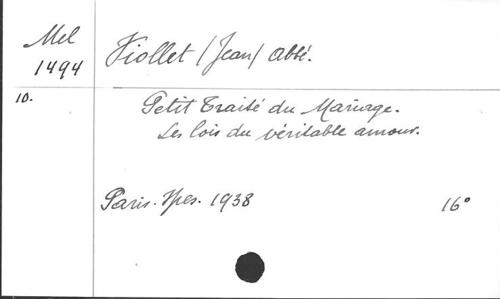 Mel
1494
Viollet (Jean) Abbé.
10.
Petit Traité du Mariage.
Les lois du véritable amour.
Paris. Ypes. 1938
16°